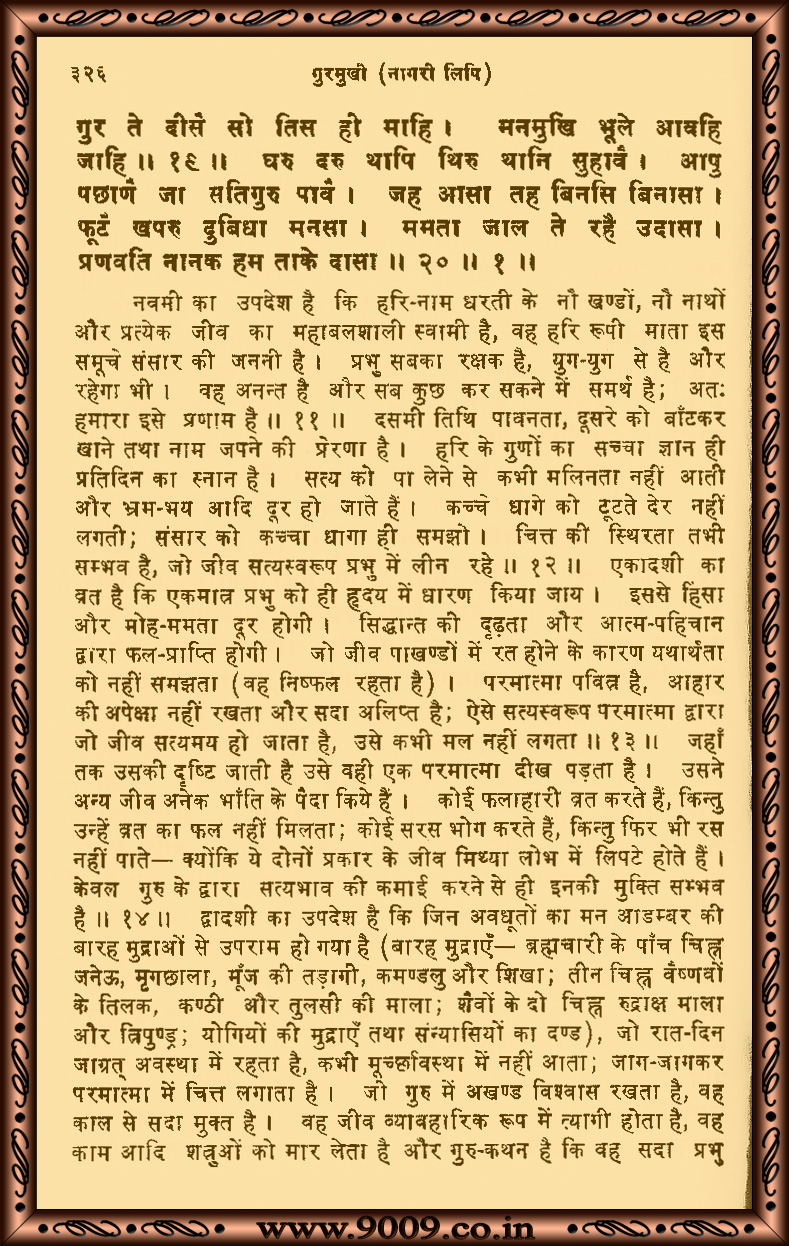 ३२६ गुरमुखी (नागरी लिपि)
गुर ते दीसै सो तिस ही माहि । मनमुखि भूले आवहि
जाहि ॥ १९ ॥ घरु दरु थापि थिरु थानि सुहावै । आपु
पछाणै जा सतिगुरु पावै । जह आसा तह बिनसि बिनासा ।
फूटै खपरु दुबिधा मनसा । ममता जाल ते रहै उदासा ।
प्रणवति नानक हम ताके दासा ॥ २० ॥ १ ॥
नवमी का उपदेश है कि हरि-नाम धरती के नौ खण्डों, नौ नाथों
और प्रत्येक जीव का महाबलशाली स्वामी है, वह हरि रूपी माता इस
समूचे संसार की जननी है । प्रभु सबका रक्षक है, युग-युग से है और
रहेगा भी । वह अनन्त है और सब कुछ कर सकने में समर्थ है; अतः
हमारा इसे प्रणाम है ॥ ११ ॥ दसमी तिथि पावनता, दूसरे को बाँटकर
खाने तथा नाम जपने की प्रेरणा है । हरि के गुणों का सच्चा ज्ञान ही
प्रतिदिन का स्नान है । सत्य को पा लेने से कभी मलिनता नहीं आती
और भ्रम-भय आदि दूर हो जाते हैं । कच्चे धागे को टूटते देर नहीं
लगती; संसार को कच्चा धागा ही समझो । चित्त की स्थिरता तभी
सम्भव है, जो जीव सत्यस्वरूप प्रभु में लीन रहे ॥ १२ ॥ एकादशी का
व्रत है कि एकमात्र प्रभु को ही हृदय में धारण किया जाय । इससे हिंसा
और मोह-ममता दूर होगी । सिद्धान्त की दृढ़ता और आत्म-पहिचान
द्वारा फल-प्राप्ति होगी । जो जीव पाखण्डों में रत होने के कारण यथार्थता
को नहीं समझता (वह निष्फल रहता है) । परमात्मा पवित्र है, आहार
की अपेक्षा नहीं रखता और सदा अलिप्त है; ऐसे सत्यस्वरूप परमात्मा द्वारा
जो जीव सत्यमय हो जाता है, उसे कभी मल नहीं लगता ॥ १३ ॥ जहाँ
तक उसकी दृष्टि जाती है उसे वही एक परमात्मा दीख पड़ता है । उसने
अन्य जीव अनेक भाँति के पैदा किये हैं । कोई फलाहारी व्रत करते हैं, किन्तु
उन्हें व्रत का फल नहीं मिलता; कोई सरस भोग करते हैं, किन्तु फिर भी रस
नहीं पाते— क्योंकि ये दोनों प्रकार के जीव मिथ्या लोभ में लिपटे होते हैं ।
केवल गुरु के द्वारा सत्यभाव की कमाई करने से ही इनकी मुक्ति सम्भव
है ॥ १४ ॥ द्वादशी का उपदेश है कि जिन अवधूतों का मन आडम्बर की
बारह मुद्राओं से उपराम हो गया है (बारह मुद्राएँ— ब्रह्मचारी के पाँच चिह्न
जनेऊ, मृगछाला, मूँज की तड़ागी, कमण्डलु और शिखा; तीन चिह्न वैष्णवों
के तिलक, कण्ठी और तुलसी की माला; शैवों के दो चिह्न रुद्राक्ष माला
और त्रिपुण्ड्र; योगियों की मुद्राएँ तथा संन्यासियों का दण्ड), जो रात-दिन
जाग्रत् अवस्था में रहता है, कभी मूर्च्छावस्था में नहीं आता; जाग-जागकर
परमात्मा में चित्त लगाता है । जो गुरु में अखण्ड विश्वास रखता है, वह
काल से सदा मुक्त है । वह जीव व्यावहारिक रूप में त्यागी होता है, वह
काम आदि शत्रुओं को मार लेता है और गुरु-कथन है कि वह सदा प्रभु
www.9009.co.in